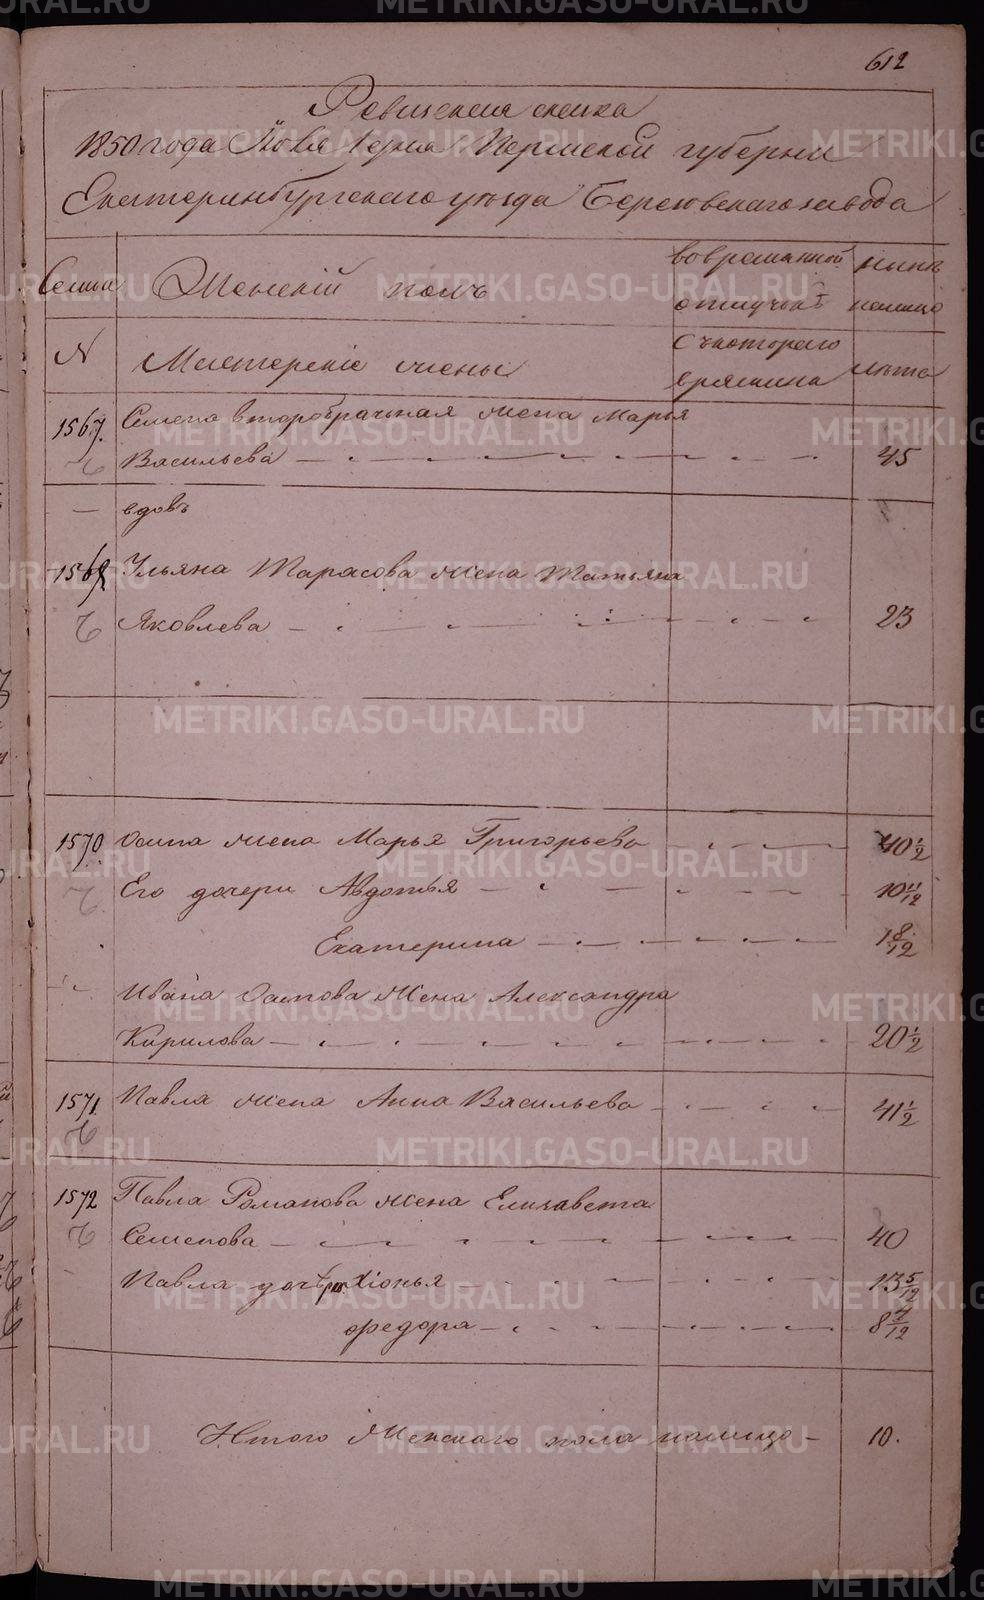 612
Ревизская сказка
1850 года Ноября 1 дня Пермской губернии
Екатеринбургскаго уезда Березовскаго завода
Семьи Женскій полъ во временной отлучкѣ ныне налицо
N Мастерскіе жены с котораго времени лета
1567. Семена второбрачная жена Марья
Васильева 45
вдовъ
Ульяна Тарасова жена Татьяна
Яковлева 23
1570. Осипа жена Марья Григорьева 40 1/2
Его дочери Авдотья 10 11/12
Екатерина 1 8/12
Ивана Осипова жена Александра
Кирилова 20 1/2
1571. Павла жена Анна Васильева 41 1/2
1572 Павла Романова жена Елизавета
Семенова 40
Павла дочери Хіонья 13 5/12
Федора 8 7/12
Итого Женскаго пола налицо 10.
METRIKI.GASO-URAL.RU